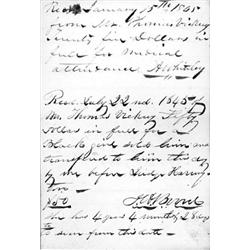 Recd January 15th 1845
from Mr. Thomas Vickry
Twenty six Dollars in
full for medical
attendance A Whitley
Recd. July 22nd. 1845 of
Mr. Thomas Vickry Fifty
dollars in full for a
Black girl sold him and
transferred to him this day
by me before Judge
$50
She has 4 years 4 months & 8 days
to serve from this date —